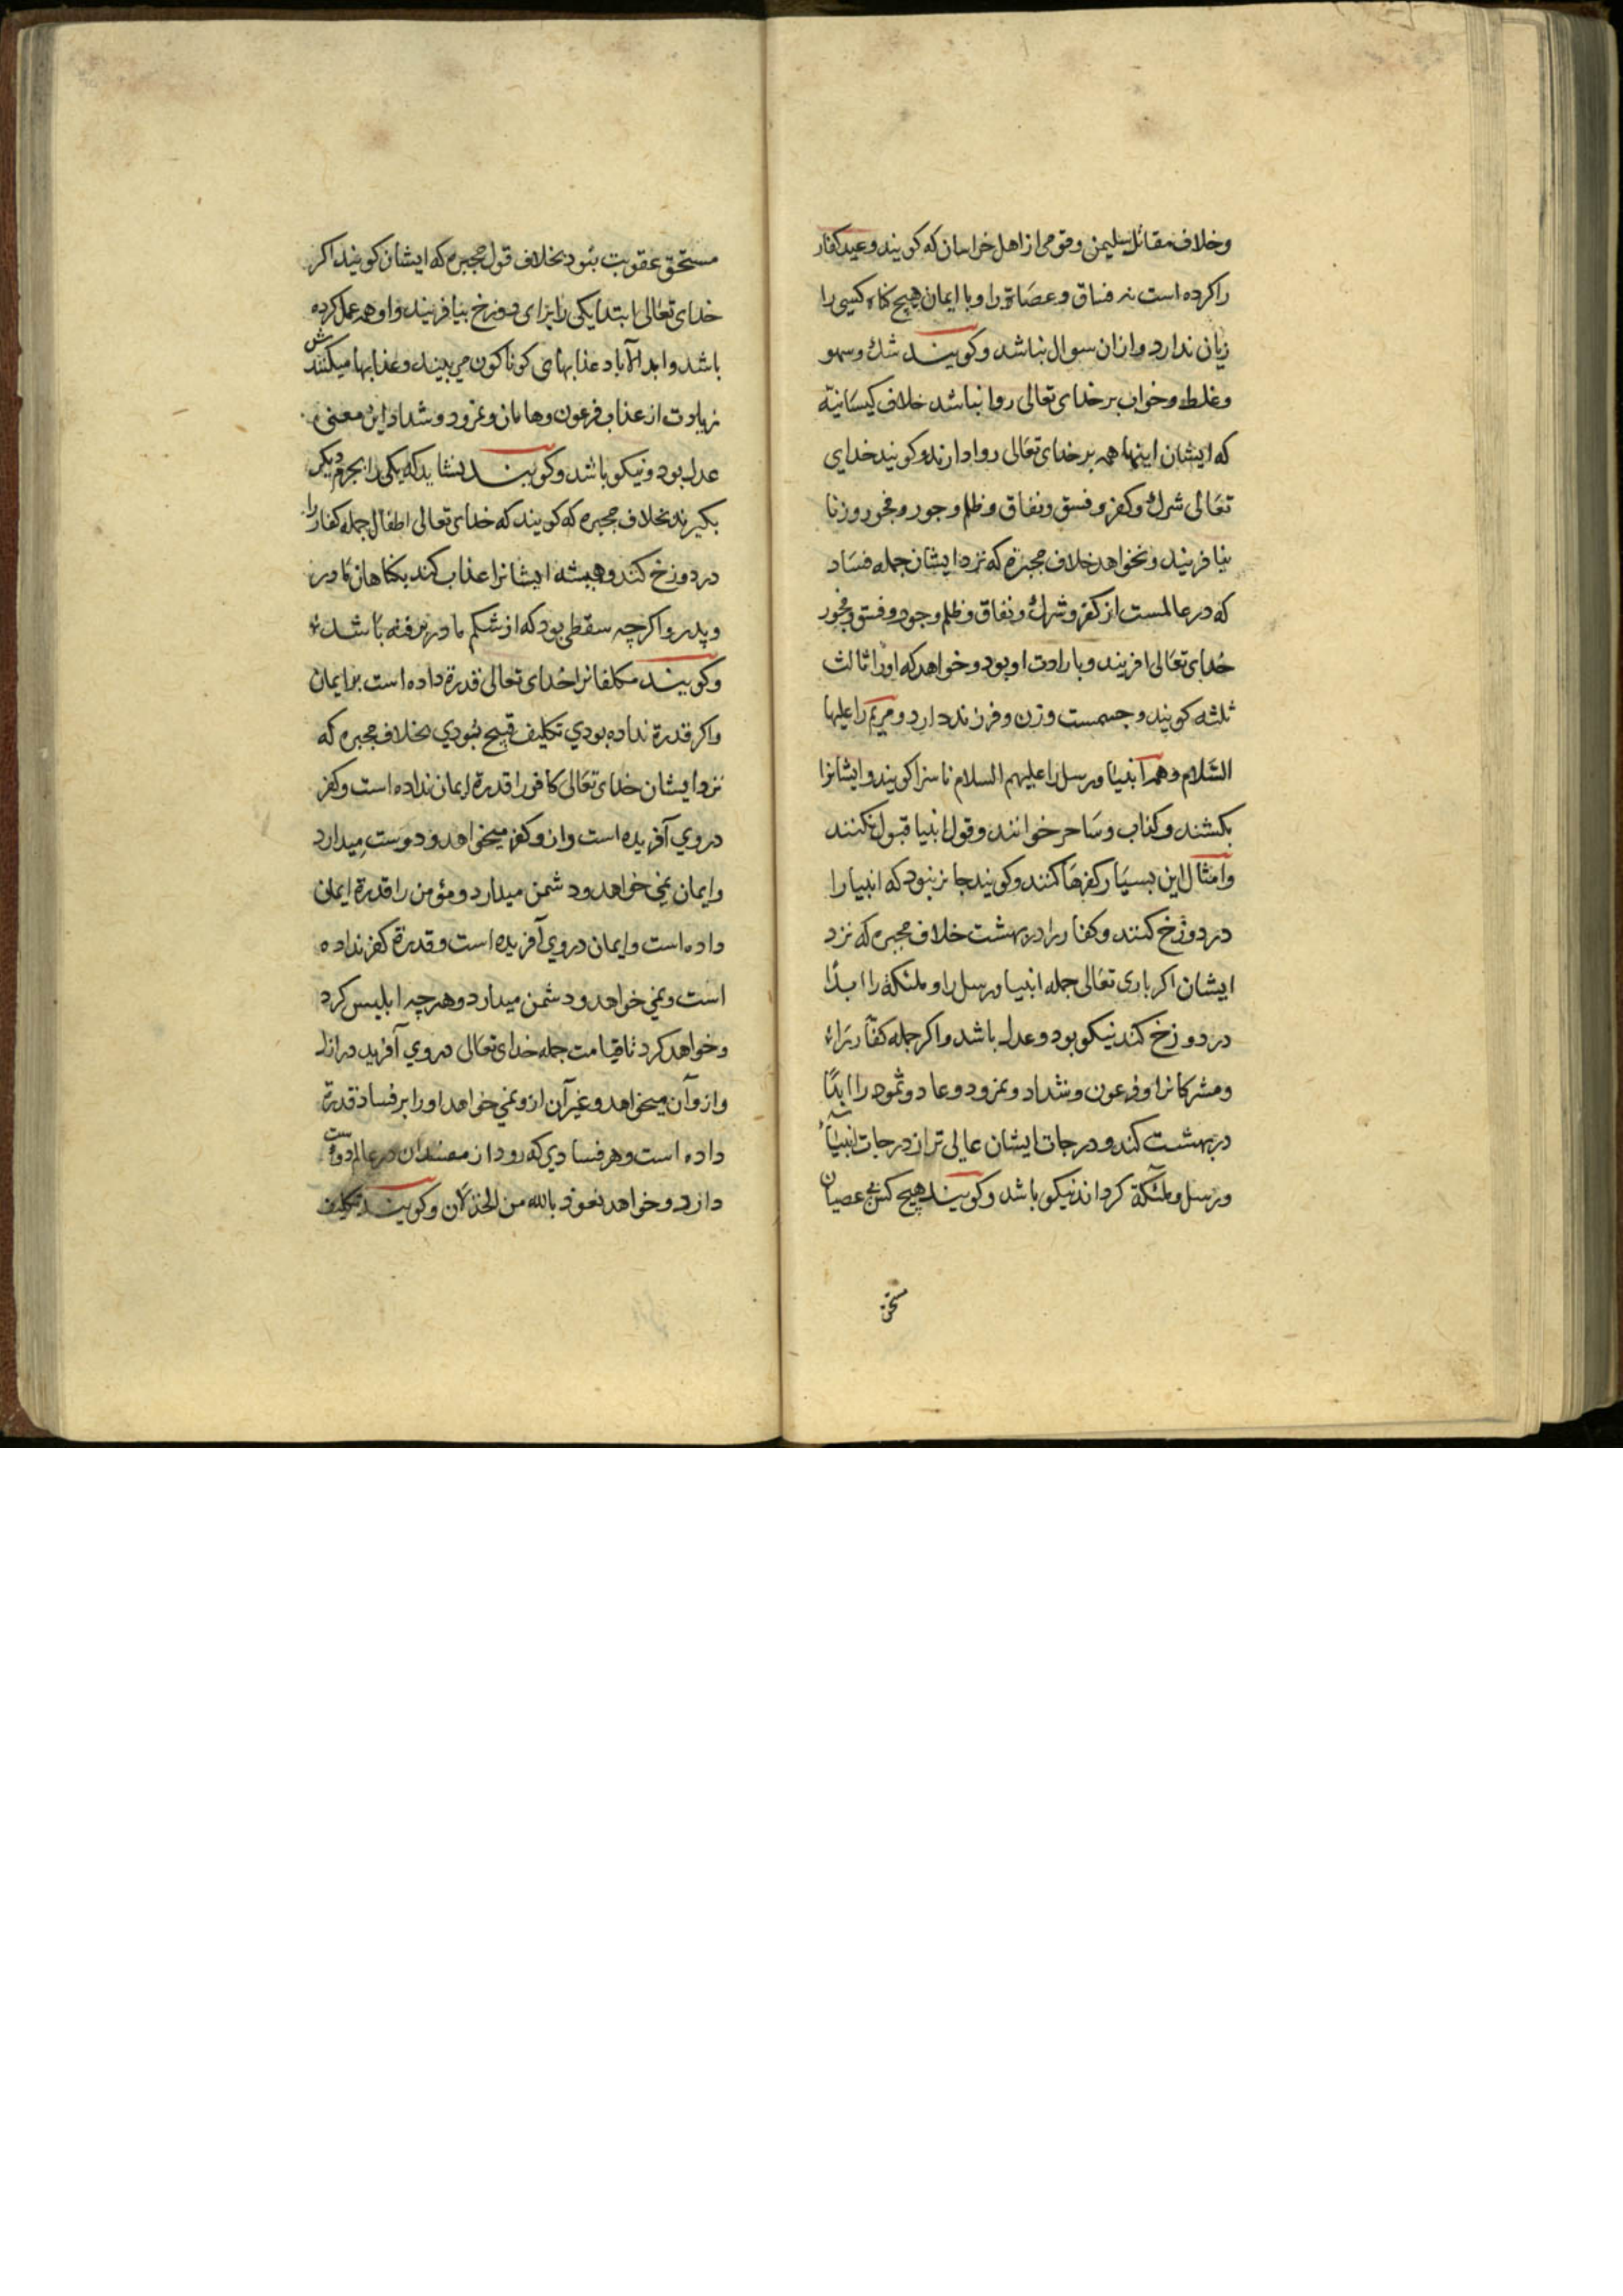 وخلاف مقاتل سلیمن وقومی از اهل خراسان که کویند وعید کفار
را کرده است نه فساق وعصاة را وبا ایمان هیچ کناه کسی را
زیان ندارد وازان سوال نباشد وکویند شك وسهو
وغلط وخواب بر خدای تعالی روا نباشد خلاف کیسانیة
که ایشان اینها همه بر خدای تعالی روا دارند وکویند خدایی
تعالی شرك وکفر وفسق ونفاق وظلم وجور وفجور وزنا
نیافریند ونخواهد خلاف مجبره که نزد ایشان جمله فساد
که در عالمست از کفر وشرك ونفاق وظلم وجور وفسق وفجور
خدای تعالی افریند وبارادت او بود وخواهد که اورا ثالث
ثلثه کویند وجسمست وزن وفرزند دارد ومریم را علیها
السلام وهمه انبیا ورسل را علیهم السلام ناسزا کویند وایشانرا
بکشند وکذاب وساحر خوانند وقول انبیا قبول نکنند
وامثال این بسیار کفرها کنند وکویند جایز نبود که انبیا را
در دوزخ کنند وکفار را در بهشت خلاف مجبره که نزد
ایشان اکر باری تعالی جمله انبیا ورسل را وملئکة را ابدًا
در دوزخ کند نیکو بود وعدل باشد واکر جمله کفار را
ومشرکانرا وفرعون وشداد ونمرود وعاد وثمود را ابدًا
در بهشت کند ودرجات ایشان عالی تر از درجات انبیاء
ورسل وملئکة کرداند نیکو باشد وکویند هیچ کس بی عصیان
مستحق
مستحق عقوبت نبود بخلاف قول مجبره که ایشان کویند اکر
خدای تعالی ابتدا یکی را برای دوزخ بیافریند واو همه عمل کرده
باشد وابد الآباد عذابهای کوناکون می بیند وعذابها میکنندش
زیادت از عذاب فرعون وهامان ونمرود وشداد این معنی
عدل بود ونیکو باشد وکویند نشاید که یکی را بجرم دیکر
بکیرند بخلاف مجبره که کویند که خدای تعالی اطفال جمله کفار را
در دوزخ کند وهمیشه ایشانرا عذاب کند بکناهان مادر
وپدر واکرچه سقطی بود که از شکم مادر برفته باشد
وکویند مکلفانرا خدای تعالی قدرة داده است بر ایمان
واکر قدرة نداده بودی تکلیف قبیح بودی بخلاف مجبره که
نزد ایشان خدای تعالی کافر را قدرة ایمان نداده است وکفر
در وی آفریده است وازو کفر میخواهد ودوست میدارد
وایمان نمی خواهد ودشمن میدارد ومؤمن را قدرة ایمان
داده است وایمان در وی آفریده است وقدرة کفر نداده
است ونمی خواهد ودشمن میدارد وهرچه ابلیس کرد
وخواهد کرد تا قیامت جمله خدای تعالی در وی آفرید در ازل
وازو آن میخواهد وغیر آن ازو نمی خواهد اورا بر فساد قدرة
داده است وهر فسادی که رود از مفسدان در عالم دوست
دارد وخواهد نعوذ بالله من الخذلان وکویند تکلیف